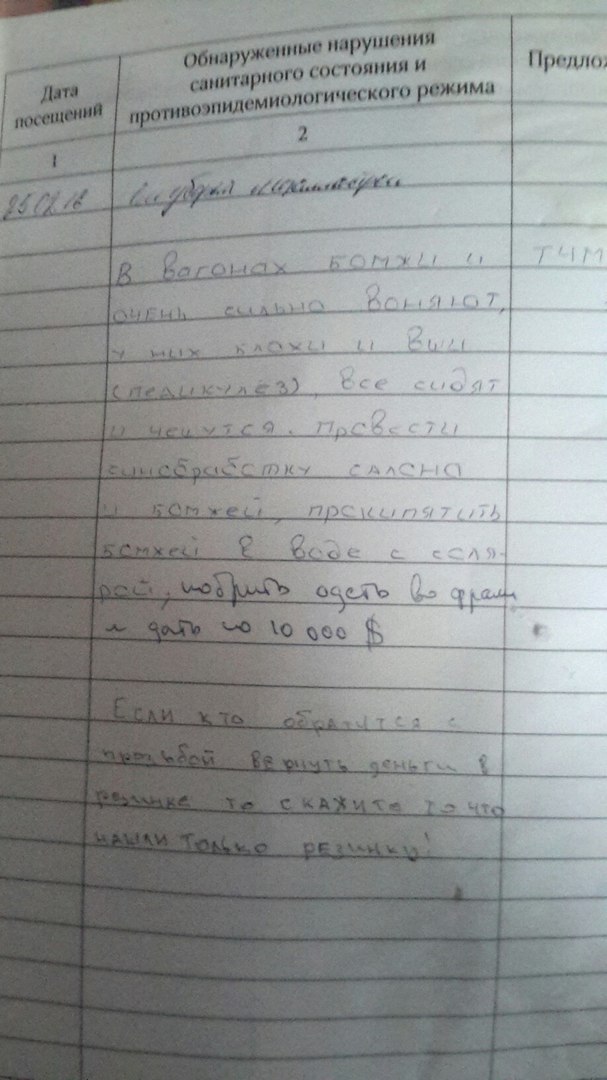 Дата
посещений
Обнаруженные нарушения
санитарного состояния и
противоэпидемиологического режима
Предлож
1
2
В вагонах бомжи и
очень сильно воняют,
у них блохи и вши
(педикулёз), все сидят
и чешутся. Провести
санобработку салона
и бомжей, прокипятить
бомжей в воде с соля-
рой, побрить одеть во фраки
и дать по 10 000 $
Если кто обратится с
просьбой вернуть деньги в
резинке то скажите то что
нашли только резинку!